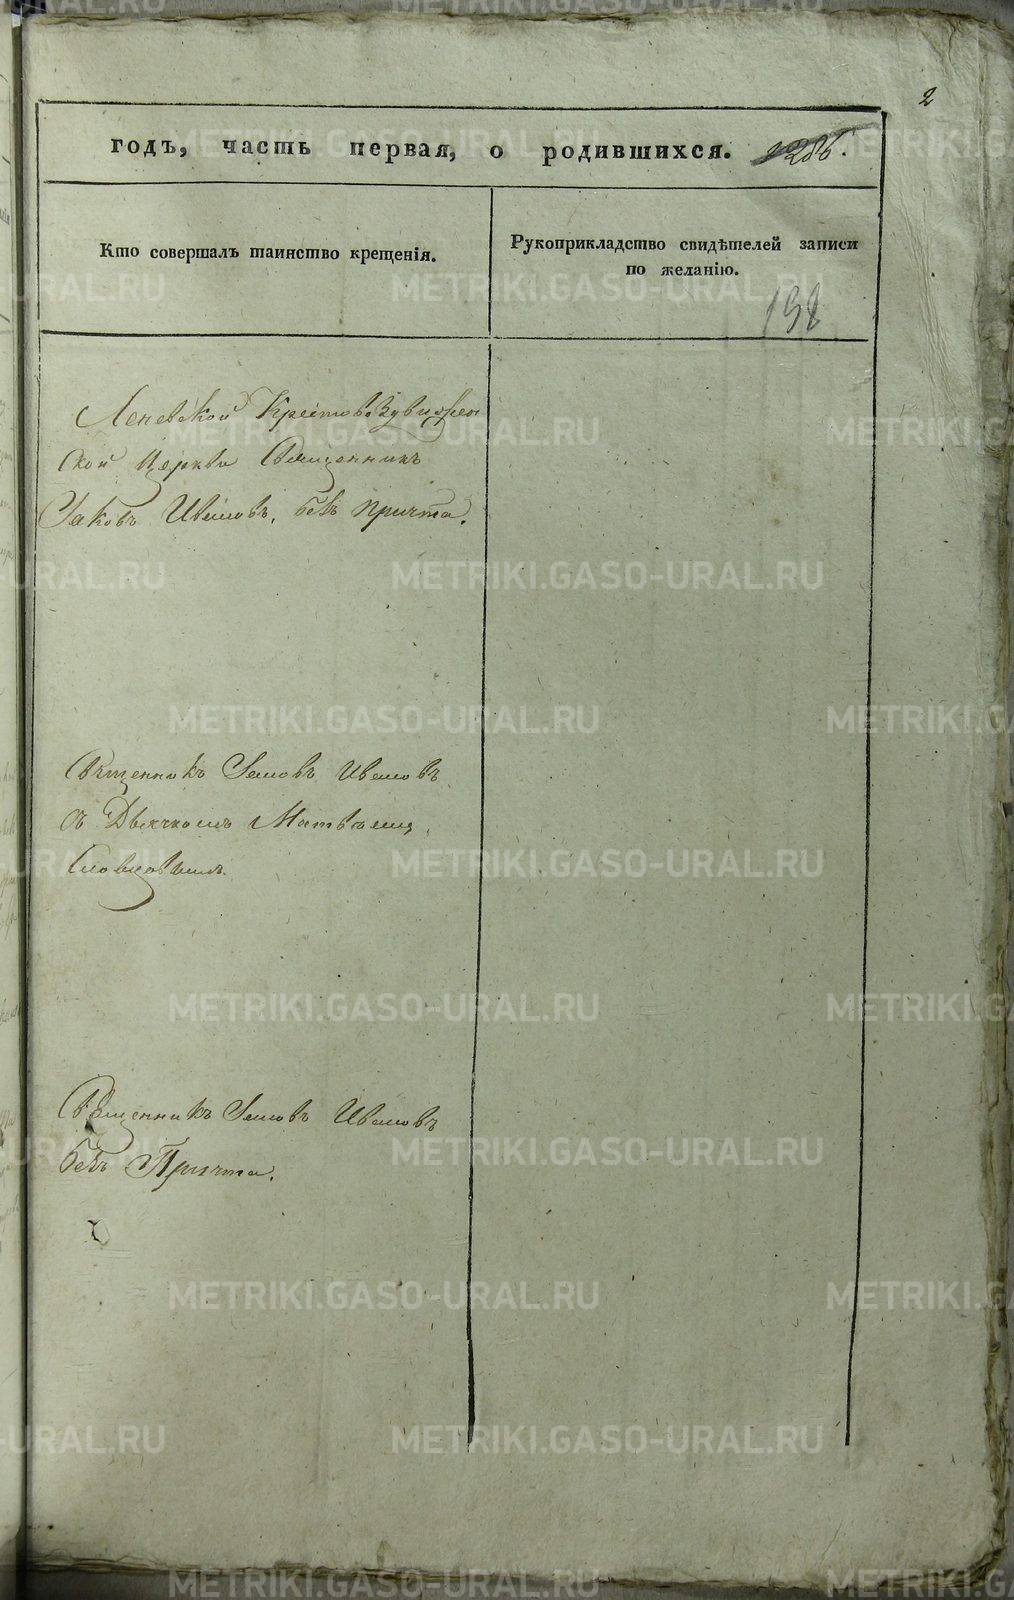 2
годъ, часть первая, о родившихся. 286.
Кто совершалъ таинство крещенія.
Рукоприкладство свидѣтелей записи
по желанію.
198
Леневской Крестовоздвижен
ской Церкви Священникъ
Іаковъ Ивановъ, безъ причта.
Священникъ Іаковъ Ивановъ
съ Дьячкомъ Матвѣемъ
Словцовымъ.
Священникъ Іаковъ Ивановъ
безъ Причта.
METRIKI.GASO-URAL.RU